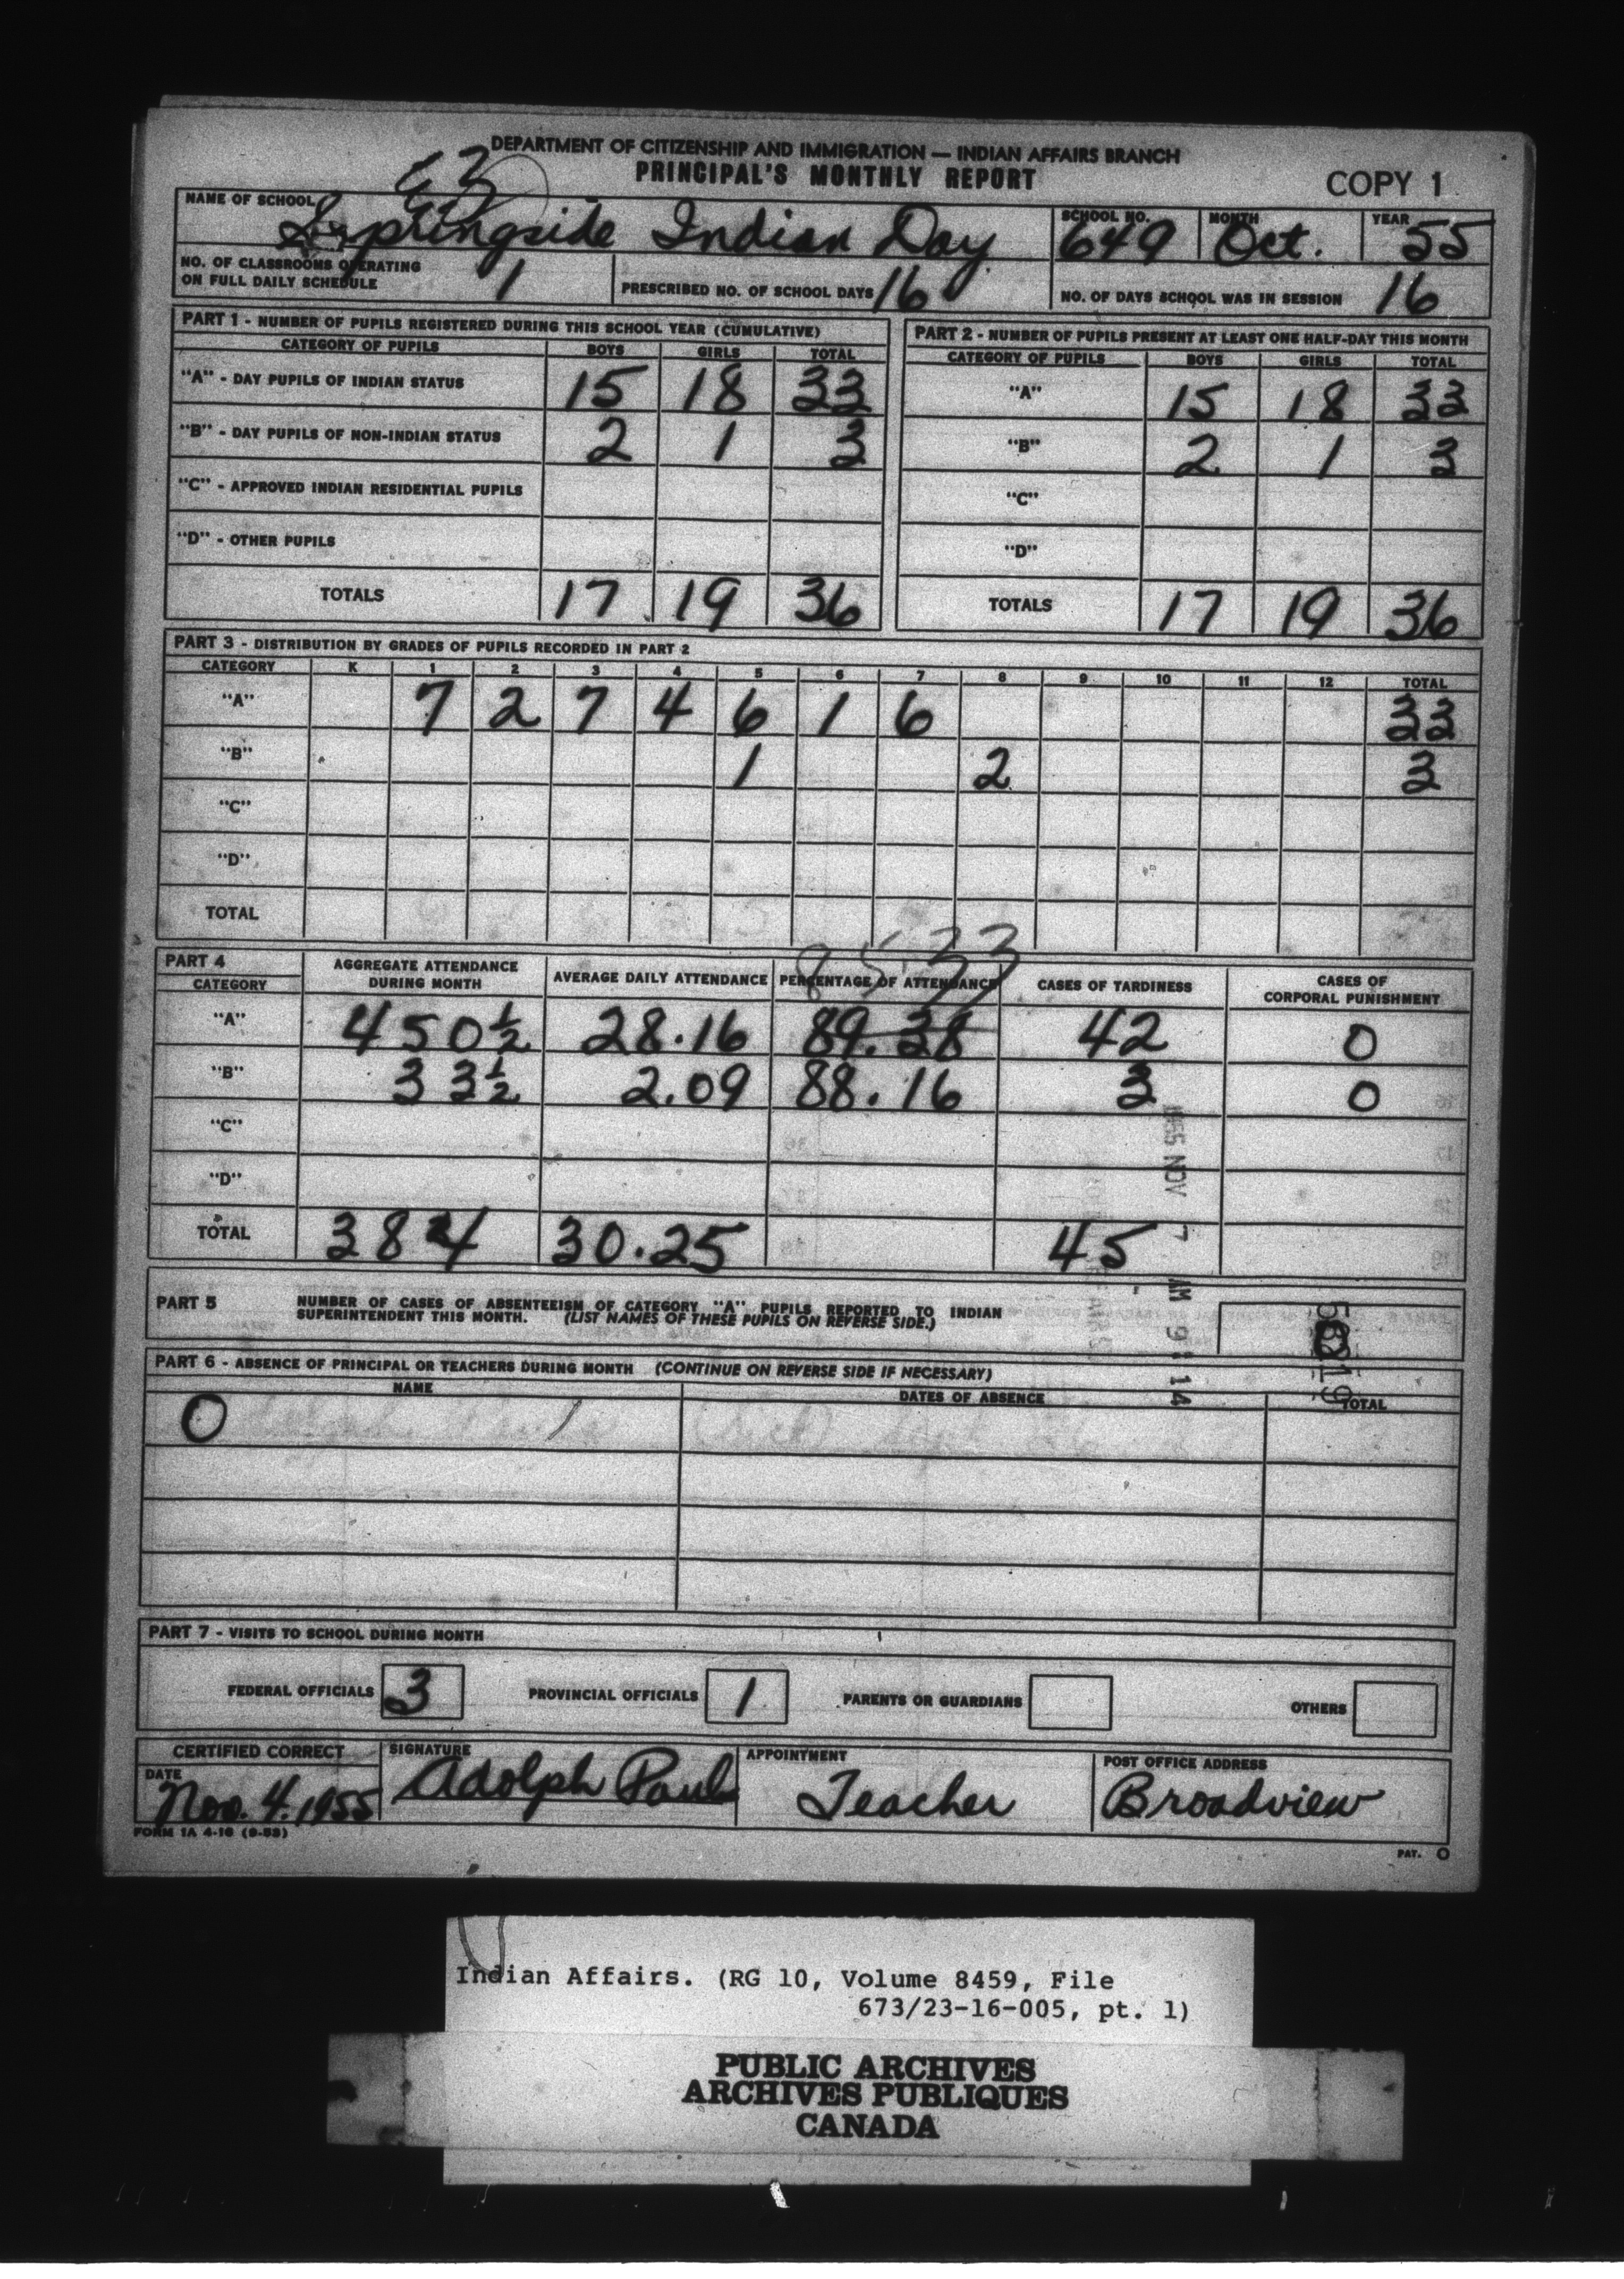 DEPARTMENT OF CITIZENSHIP AND IMMIGRATION — INDIAN AFFAIRS BRANCH
PRINCIPAL'S MONTHLY REPORT
COPY 1
NAME OF SCHOOL Springside Indian Day SCHOOL NO. 649 MONTH Oct. YEAR 55
NO. OF CLASSROOMS OPERATING ON FULL DAILY SCHEDULE 1 PRESCRIBED NO. OF SCHOOL DAYS 16 NO. OF DAYS SCHOOL WAS IN SESSION 16
PART 1 - NUMBER OF PUPILS REGISTERED DURING THIS SCHOOL YEAR (CUMULATIVE)
CATEGORY OF PUPILS BOYS GIRLS TOTAL
"A" - DAY PUPILS OF INDIAN STATUS 15 18 33
"B" - DAY PUPILS OF NON-INDIAN STATUS 2 1 3
"C" - APPROVED INDIAN RESIDENTIAL PUPILS
"D" - OTHER PUPILS
TOTALS 17 19 36
PART 2 - NUMBER OF PUPILS PRESENT AT LEAST ONE HALF-DAY THIS MONTH
CATEGORY OF PUPILS BOYS GIRLS TOTAL
"A" 15 18 33
"B" 2 1 3
"C"
"D"
TOTALS 17 19 36
PART 3 - DISTRIBUTION BY GRADES OF PUPILS RECORDED IN PART 2
CATEGORY K 1 2 3 4 5 6 7 8 9 10 11 12 TOTAL
"A" 7 2 7 4 6 1 6 33
"B" 1 2 3
"C"
"D"
TOTAL
PART 4
CATEGORY AGGREGATE ATTENDANCE DURING MONTH AVERAGE DAILY ATTENDANCE PERCENTAGE OF ATTENDANCE CASES OF TARDINESS CASES OF CORPORAL PUNISHMENT
85.33
"A" 450½ 28.16 89.28 42 0
"B" 33½ 2.09 88.16 3 0
"C"
"D"
TOTAL 384 30.25 45
1955 NOV 7 AM 9:14
PART 5 NUMBER OF CASES OF ABSENTEEISM OF CATEGORY "A" PUPILS REPORTED TO INDIAN
SUPERINTENDENT THIS MONTH. (LIST NAMES OF THESE PUPILS ON REVERSE SIDE.) 0
PART 6 - ABSENCE OF PRINCIPAL OR TEACHERS DURING MONTH (CONTINUE ON REVERSE SIDE IF NECESSARY)
NAME DATES OF ABSENCE TOTAL
0
PART 7 - VISITS TO SCHOOL DURING MONTH
FEDERAL OFFICIALS 3 PROVINCIAL OFFICIALS 1 PARENTS OR GUARDIANS OTHERS
CERTIFIED CORRECT SIGNATURE APPOINTMENT POST OFFICE ADDRESS
DATE Nov. 4. 1955 Adolph Paul Teacher Broadview
FORM 1A 4-16 (9-53)
PAT. O
Indian Affairs. (RG 10, Volume 8459, File
673/23-16-005, pt. 1)
PUBLIC ARCHIVES
ARCHIVES PUBLIQUES
CANADA